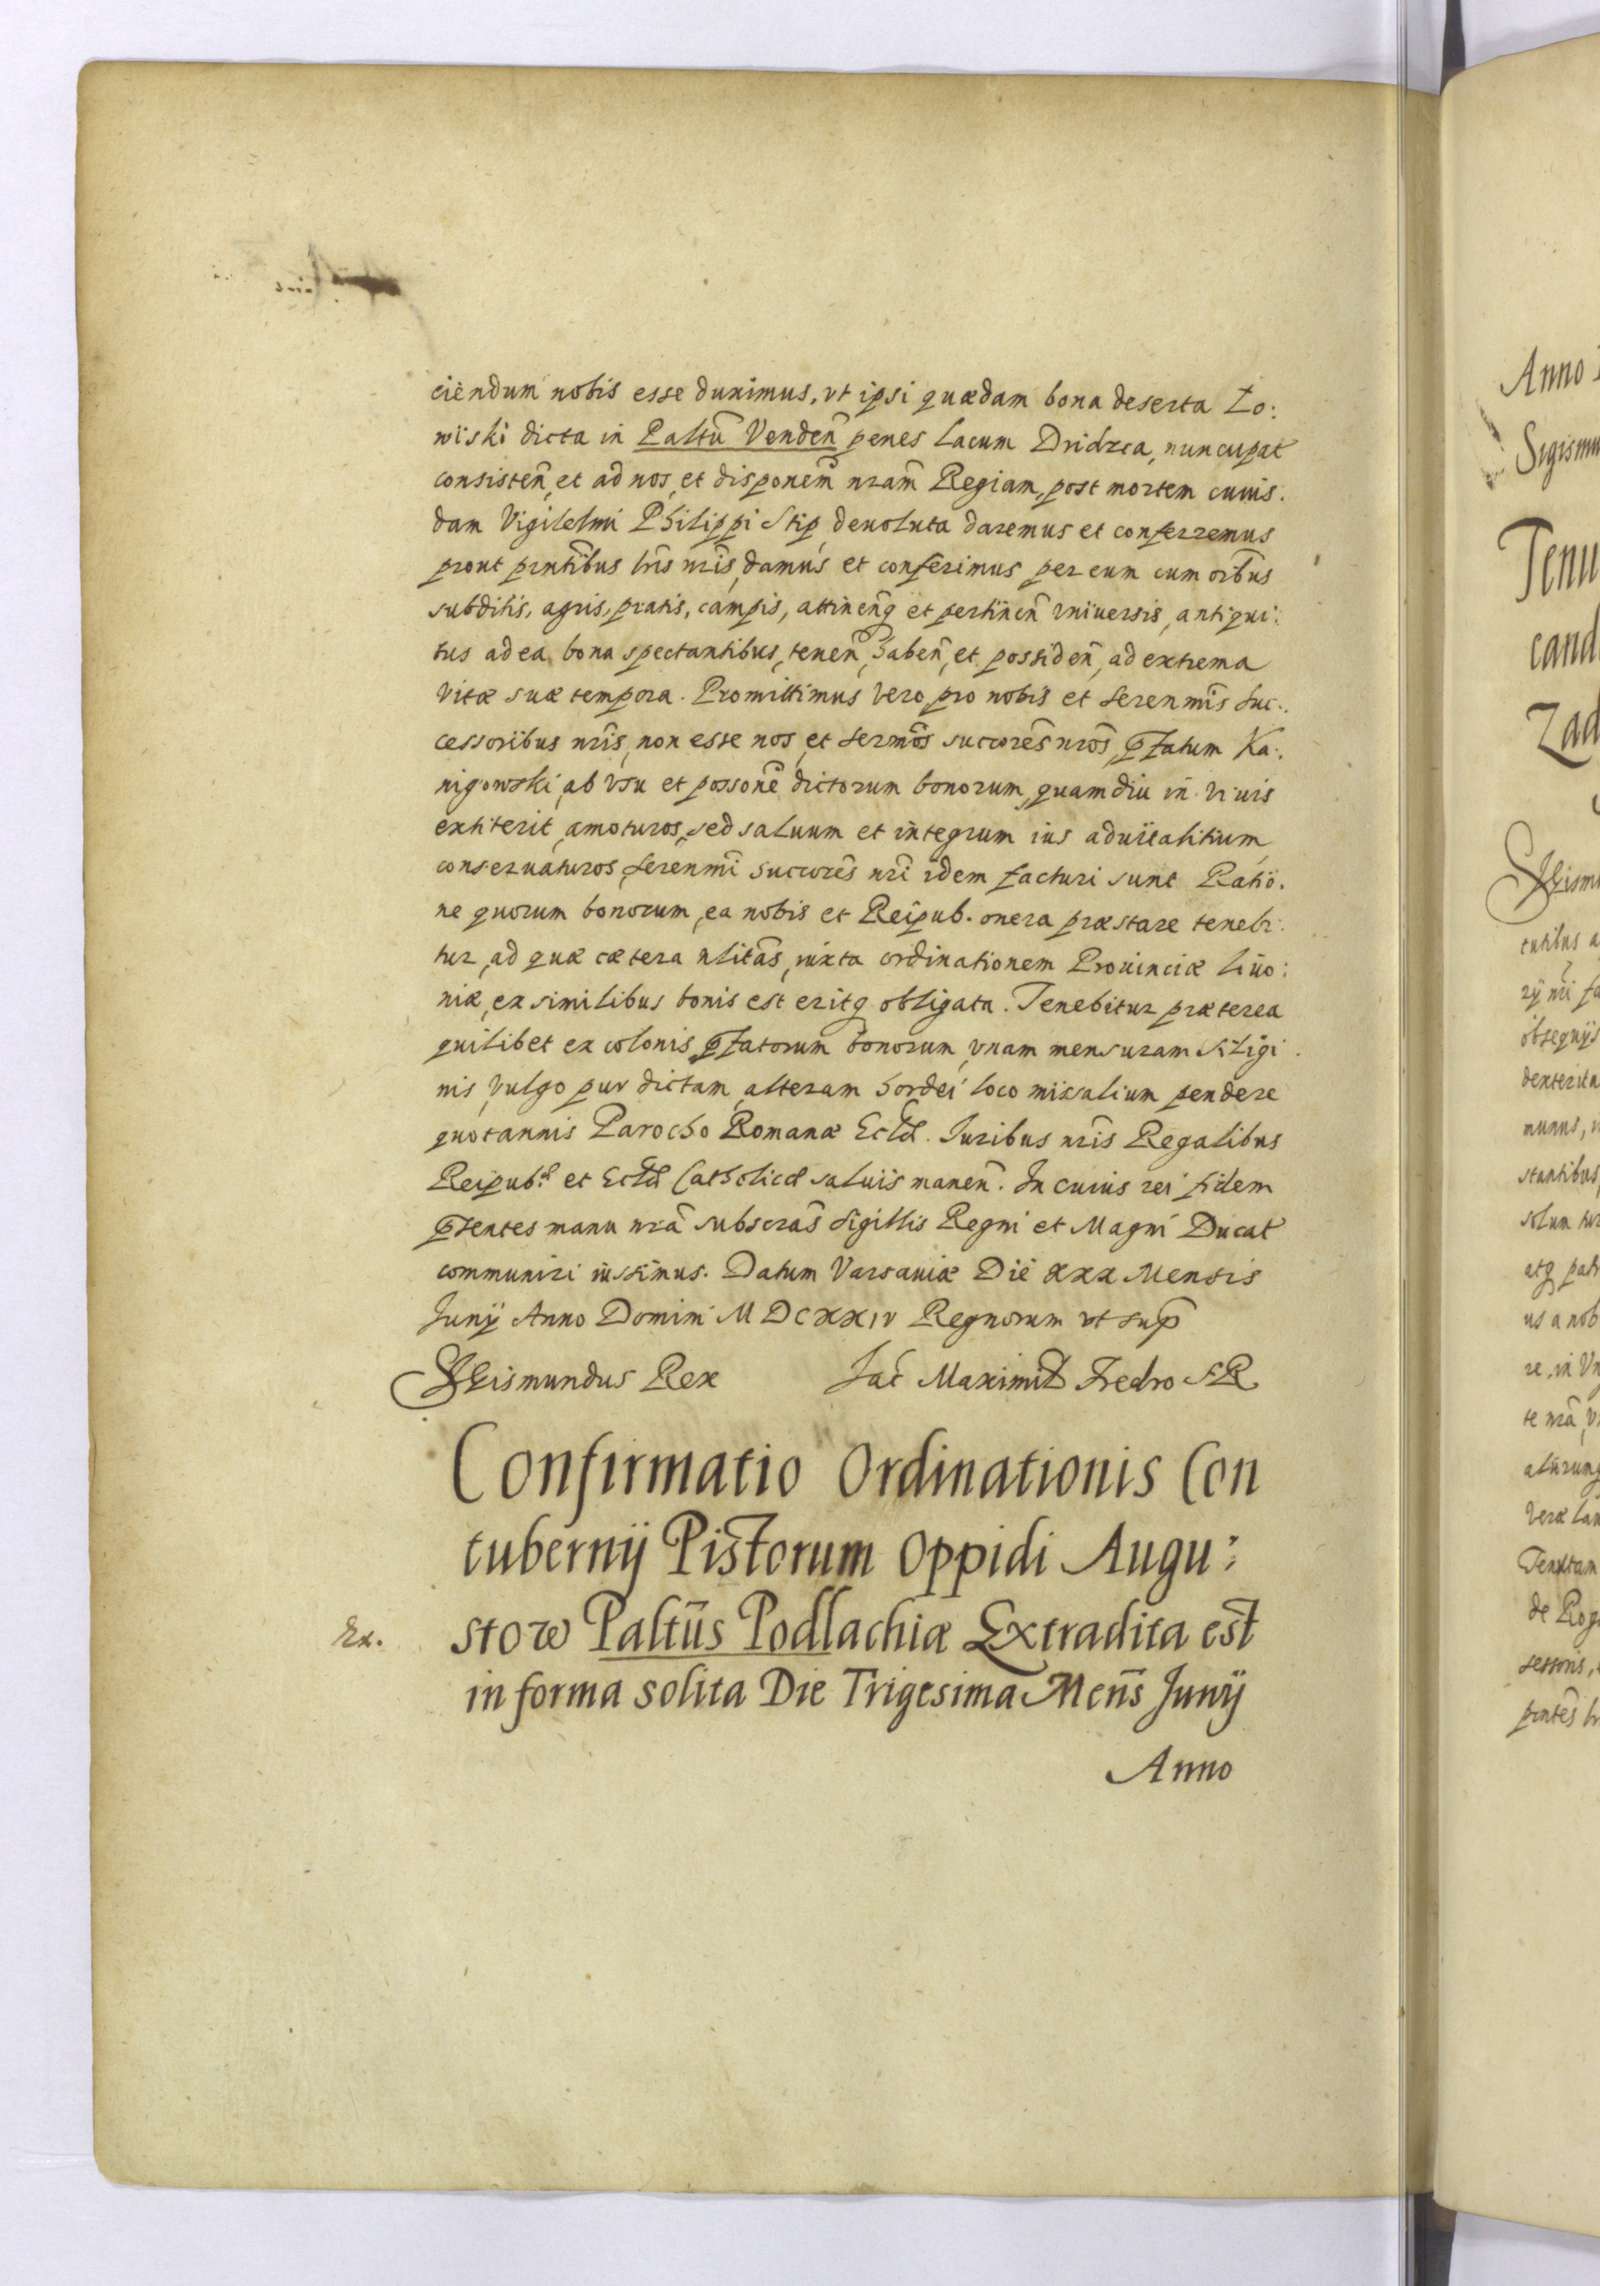 ciendum nobis esse duximus, vt ipsi quædam bona deserta Lo:
wiski dicta in Paltũ Vendeñ penes Lacum Dridzca, nuncupat
consisteñ, et ad nos, et disponem̃ nram̃ Regiam, post mortem cuius:
dam Vigilelmi Philippi Stip, deuoluta daremus et conferremus
prout prntibus lris nris, damus et conferimus per eum cum oribus
subditis, agris, pratis, campis, attineñq et pertineñ vniuersis, antiqui:
tus ad ea bona spectantibus, teneñ, habeñ, et possideñ, ad extrema
vitæ suæ tempora. Promittimus vero, pro nobis et Serenmis Suc:
cessoribus nris, non esse nos, et Sermos succores nros, pfatum Ka:
nigowski, ab vsu et possone dictorum bonorum, quamdiu in viuis
extiterit, amoturos, sed saluum et integrum ius aduitalitium
conseruaturos, Serenmi Succores nri idem facturi sunt Ratio:
ne quorum bonorum, ea nobis et Reipub. onera præstare tenebi:
tur, ad quæ cætera nlitas, iuxta ordinationem Prouinciæ Liuo:
niæ, ex similibus bonis est eritq obligata. Tenebitur præterea
quilibet ex colonis pfatorum bonorum, vnam mensuram Siligi
nis, vulgo pur dictam, alteram hordei loco missalium pendere
quotannis Parocho Romanæ Eclæ. Juribus nris Regalibus
Reipubæ et Eclæ Catholicæ saluis maneñ. In cuius rei fidem
pfentes manu nra subscras Sigillis Regni et Magni Ducat
communiri iussimus. Datum Varsauiæ Die xxx Mensis
Junij Anno Domini M DCXXIV Regnorum vt sup
Sigismundus Rex Jac Maximil Fredro SR
Confirmatio Ordinationis Con
tubernij Pistorum Oppidi Augu:
Ex. stow Paltũs Podlachiæ Extradita est
in forma solita Die Trigesima Meñs Junij
Anno
Anno
Sigismu
Tenu
cand
Zad